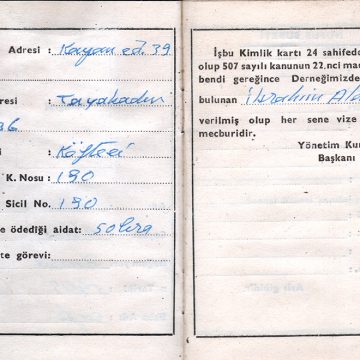 Adresi : Kayan cd. 39
resi Tayakadın
36
i Köfteci
K. Nosu : 190
Sicil No. 190
e ödediği aidat: 50 lira
te görevi:
İşbu Kimlik kartı 24 sahifede
olup 507 sayılı kanunun 22.nci mad
bendi gereğince Derneğimizde
bulunan İbrahim
verilmiş olup her sene vize
mecburidir.
Yönetim Kur
Başkanı